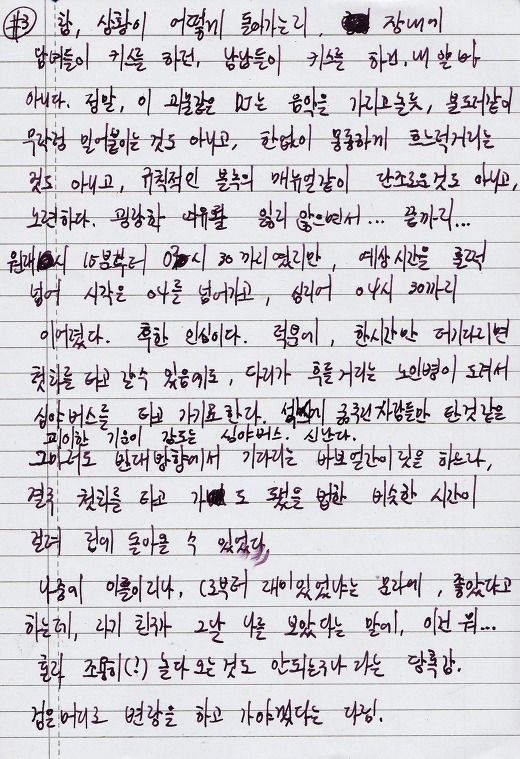 #3 참, 상황이 어떻게 돌아가는지, 장내에
남녀들이 키스를 하건, 남남들이 키스를 하건, 내 알 바
아니다. 정말, 이 괴물같은 DJ는 음악을 가지고 놀듯, 불도저같이
무작정 밀어붙이는 것도 아니고, 한없이 몽롱하게 흐느적거리는
것도 아니고, 규칙적인 불측의 매뉴얼같이 단조로운것도 아니고,
노련하다. 광란과 여유를 잃지 않으면서... 끝까지...
원래 시 15분부터 03시 30까지였지만, 예상시간을 훌쩍
넘어 시각은 04를 넘어가고, 심지어 04시 30까지
이어졌다. 후한 인심이다. 덕분에, 한시간만 더기다리면
첫차를 타고 갈수 있음에도, 다리가 후들거리는 노인병이 도져서
심야버스를 타고 가기로한다. 굶주린 자들만 탄것같은
괴이한 기운이 감도는 심야버스. 신난다.
그마저도 반대방향에서 기다리는 바보얼간이짓을 하느라,
결국 첫차를 타고 가도 됐을 법한 비슷한 시간이
걸려 집에 돌아올 수 있었다.
나중에 이틀이지나, C로부터 재미있었냐는 문자에, 좋았다고
하는데, 자기 친구가 그날 나를 보았다는 말에, 이건 뭐...
혼자 조용히(!) 놀다 오는것도 안되는구나 라는 당혹감.
검은머리로 변장을 하고 가야겠다는 다짐.